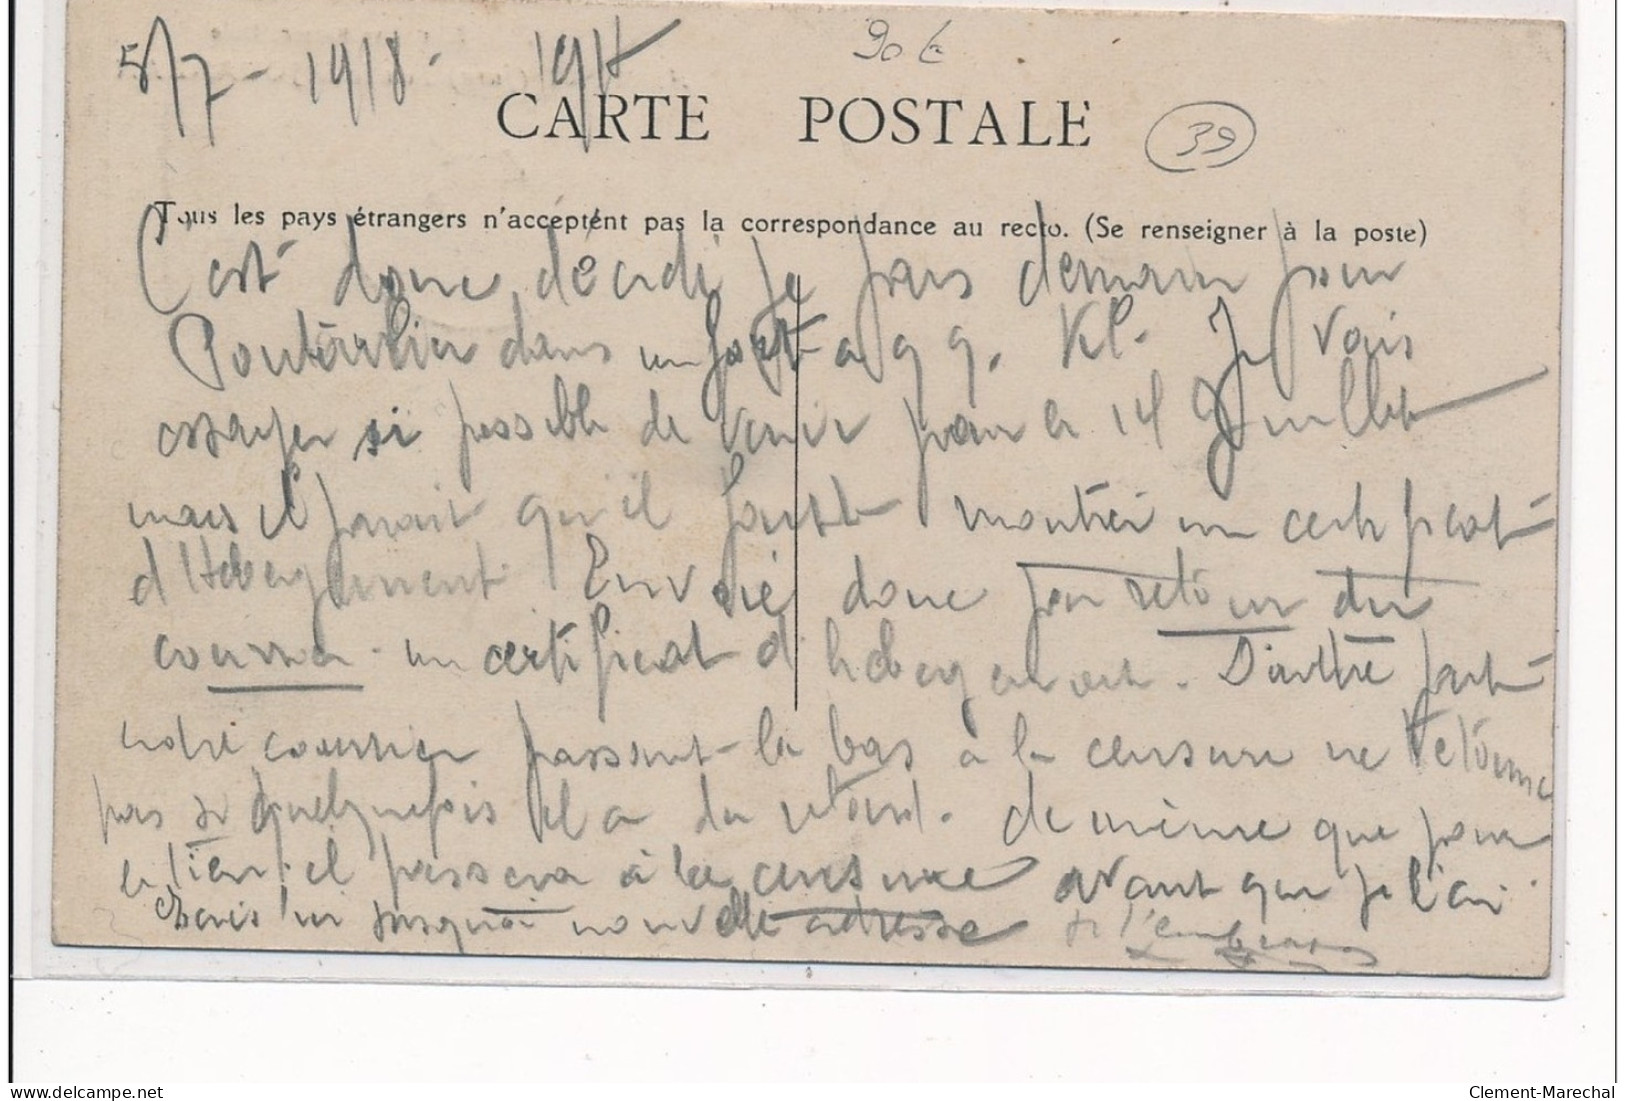 5/7 - 1918 - 1918
90 E
CARTE POSTALE
39
Tous les pays étrangers n'acceptent pas la correspondance au recto. (Se renseigner à la poste)
C'est donc décidé je pars demain pour
Pontarlier dans un fort a 99. Kl. Je vais
essayer si possible de venir pour le 14 Juillet
mais il parait qu'il faut montrer un certificat
d'Hebergement Envoie donc par retour du
courrier un certificat d'hebergement. D'autre part
notre courrier passant la bas a la censure ne t'etonne
pas si quelquefois il a du retard. de meme que pour
le tien il passera à la censure avant que je l'ai
Ecris ici jusqu'a nouvelle adresse Je l'embrasse
delcampe.net
Clement-Marechal